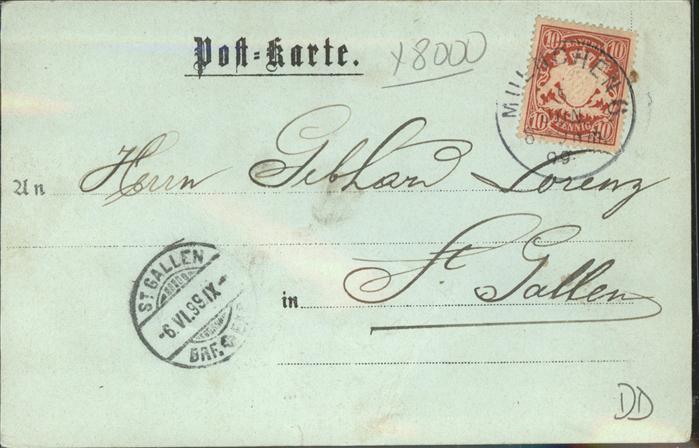 Post-Karte.
x8000
10 BAYERN 10
10 PFENNIG 10
MUENCHEN
99
An Herrn Gebhard Lorenz
in St. Gallen
ST. GALLEN
-6.VI.99.IX-
BRF.
DD